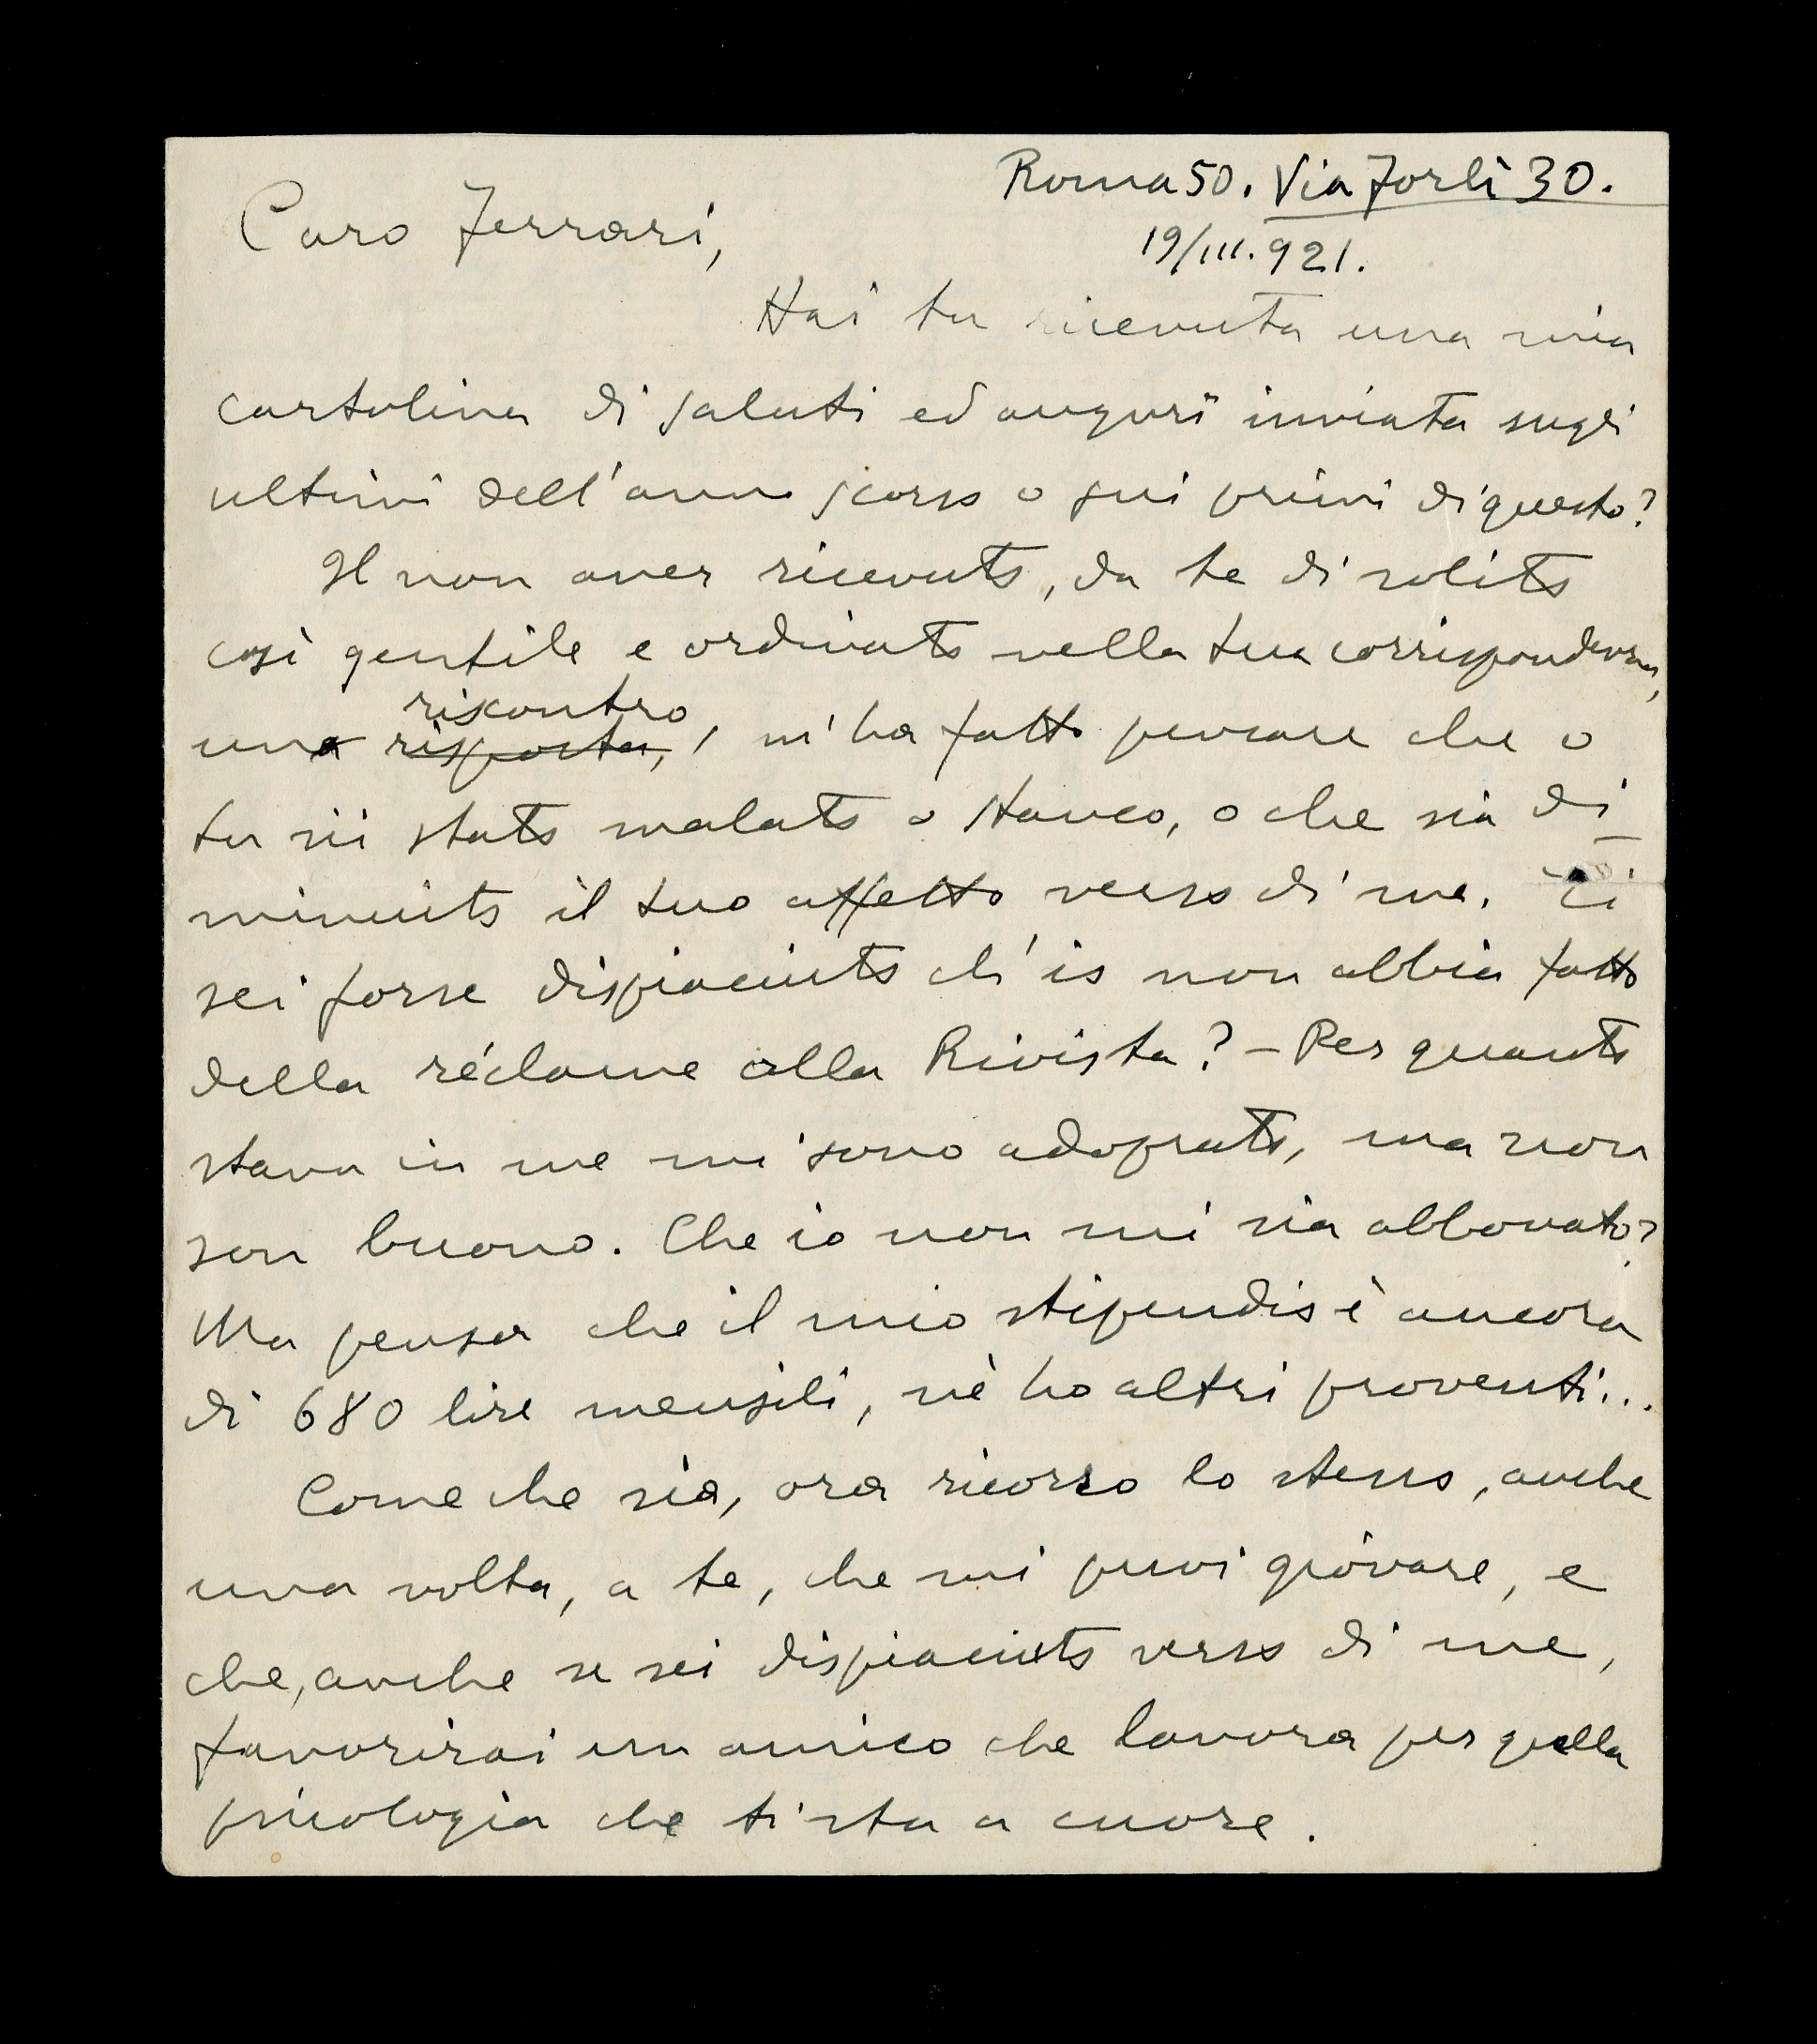 Roma 50. Via Forlì 30.
19/III.921.
Caro Ferrari,
Hai tu ricevuta una mia
cartolina di saluti ed auguri inviata sugli
ultimi dell'anno scorso o sui primi di questo?
Il non aver ricevuto, da te di solito
così gentile e ordinato nella tua corrispondenza,
riscontro
una risposta, m'ha fatto pensare che o
tu sii stato malato o stanco, o che sia di-
minuito il tuo affetto verso di me. Ti
sei forse dispiaciuto ch'io non abbia fatto
della réclame alla Rivista? – Per quanto
stava in me mi sono adoprato, ma non
son buono. Che io non mi sia abbonato?
Ma pensa che il mio stipendio è ancora
di 680 lire mensili, nè ho altri proventi...
Come che sia, ora ricorro lo stesso, anche
una volta, a te, che mi puoi giovare, e
che, anche se sei dispiaciuto verso di me,
favorirai un amico che lavora per quella
psicologia che ti sta a cuore.